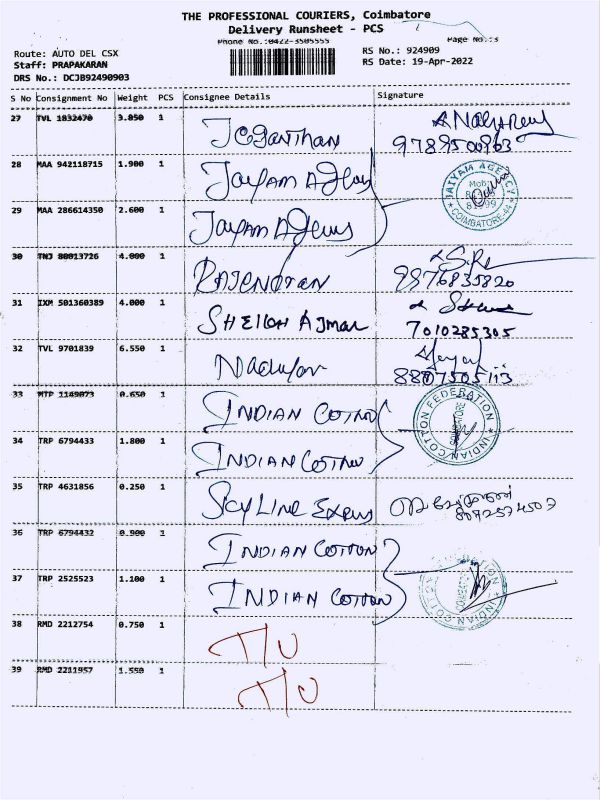 THE PROFESSIONAL COURIERS, Coimbatore
Delivery Runsheet - PCS
Phone No.:0422-3505555 Page No.:3
Route: AUTO DEL CSX RS No.: 924909
Staff: PRAPAKARAN RS Date: 19-Apr-2022
DRS No.: DCJB92490903
S No Consignment No Weight PCS Consignee Details Signature
27 TVL 1832470 3.850 1
28 MAA 942118715 1.900 1 JAIYAM AGENCY
Mob:
COIMBATORE-44
29 MAA 286614350 2.600 1
30 TNJ 80013726 4.000 1
9876835820
31 IXM 501360389 4.000 1 SHEIKH AJMAL
7010285305
32 TVL 9701839 6.550 1
8807505113
33 MTP 1149073 0.650 1 INDIAN COTTON
INDIAN COTTON FEDERATION
COIMBATORE
34 TRP 6794433 1.800 1 INDIAN COTTON
35 TRP 4631856 0.250 1 SKYLINE EXPRESS
8072574507
36 TRP 6794432 0.900 1 INDIAN COTTON
37 TRP 2525523 1.100 1 INDIAN COTTON
38 RMD 2212754 0.750 1 T/U
39 RMD 2211957 1.550 1 T/U